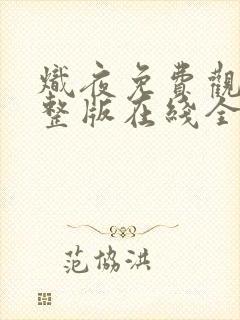 熾夜免費觀
整版在綫全
范協洪